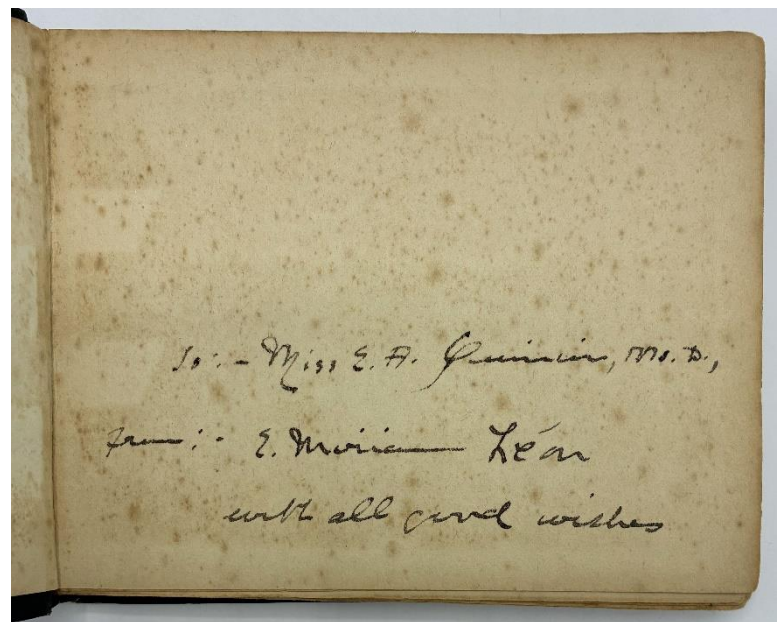 To:- Miss E. A. Quinnin, M.D.,
from:- E. Miriam Léon
with all good wishes